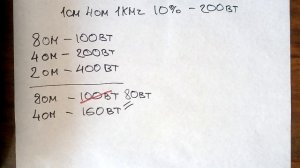 1ОМ 4ОМ 1КНг 10% – 200ВТ
8ОМ – 100ВТ
4ОМ – 200ВТ
2ОМ – 400ВТ
8ОМ – 100ВТ 80ВТ
4ОМ – 160ВТ